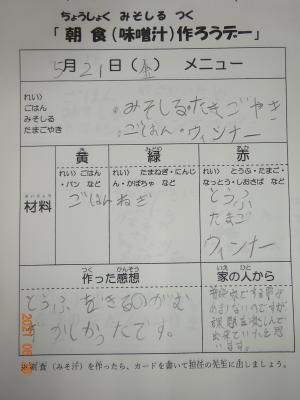 ちょうしょく みそしる つく
「朝食(味噌汁)作ろうデー」
5月21日(金) メニュー
れい〉
ごはん
みそしる
たまごやき
・みそしる・たまごやき
・ごはん・ウィンナー
き みどり あか
黄 緑 赤
材料
れい〉ごはん
・パン など
れい〉 たまねぎ・にんじ
ん・かぼちゃ など
れい〉 とうふ・たまご・
なっとう・しおさば など
ごはん
ねぎ
とうふ
たまご
ウィンナー
つく かんそう いえ ひと
作った感想 家の人から
とうふをきるのがむ
ずかしかったです。
課題を楽しんで
出来ていたと思
います。
※朝食(みそ汁)を作ったら、カードを書いて担任の先生に出しましょう。